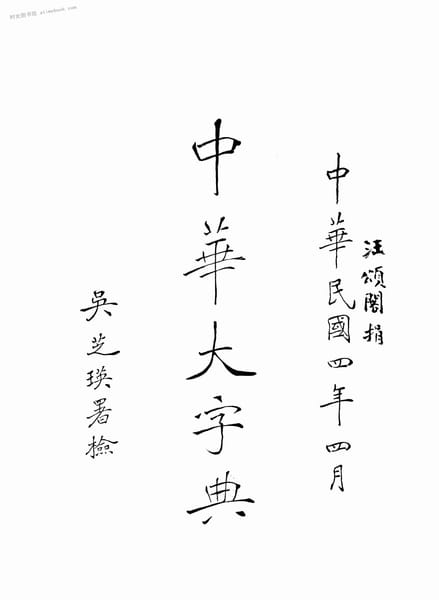 时光图书馆 etimebook.com
汪頌閣捐
中華民國四年四月
中華大字典
吳芝瑛署檢